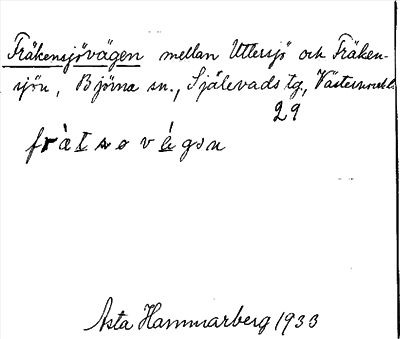 Fräkensjövägen mellan Uttersjö och Fräken-
sjön, Björna sn., Själevads tg., Västernorrl.
29
Asta Hammarberg 1933